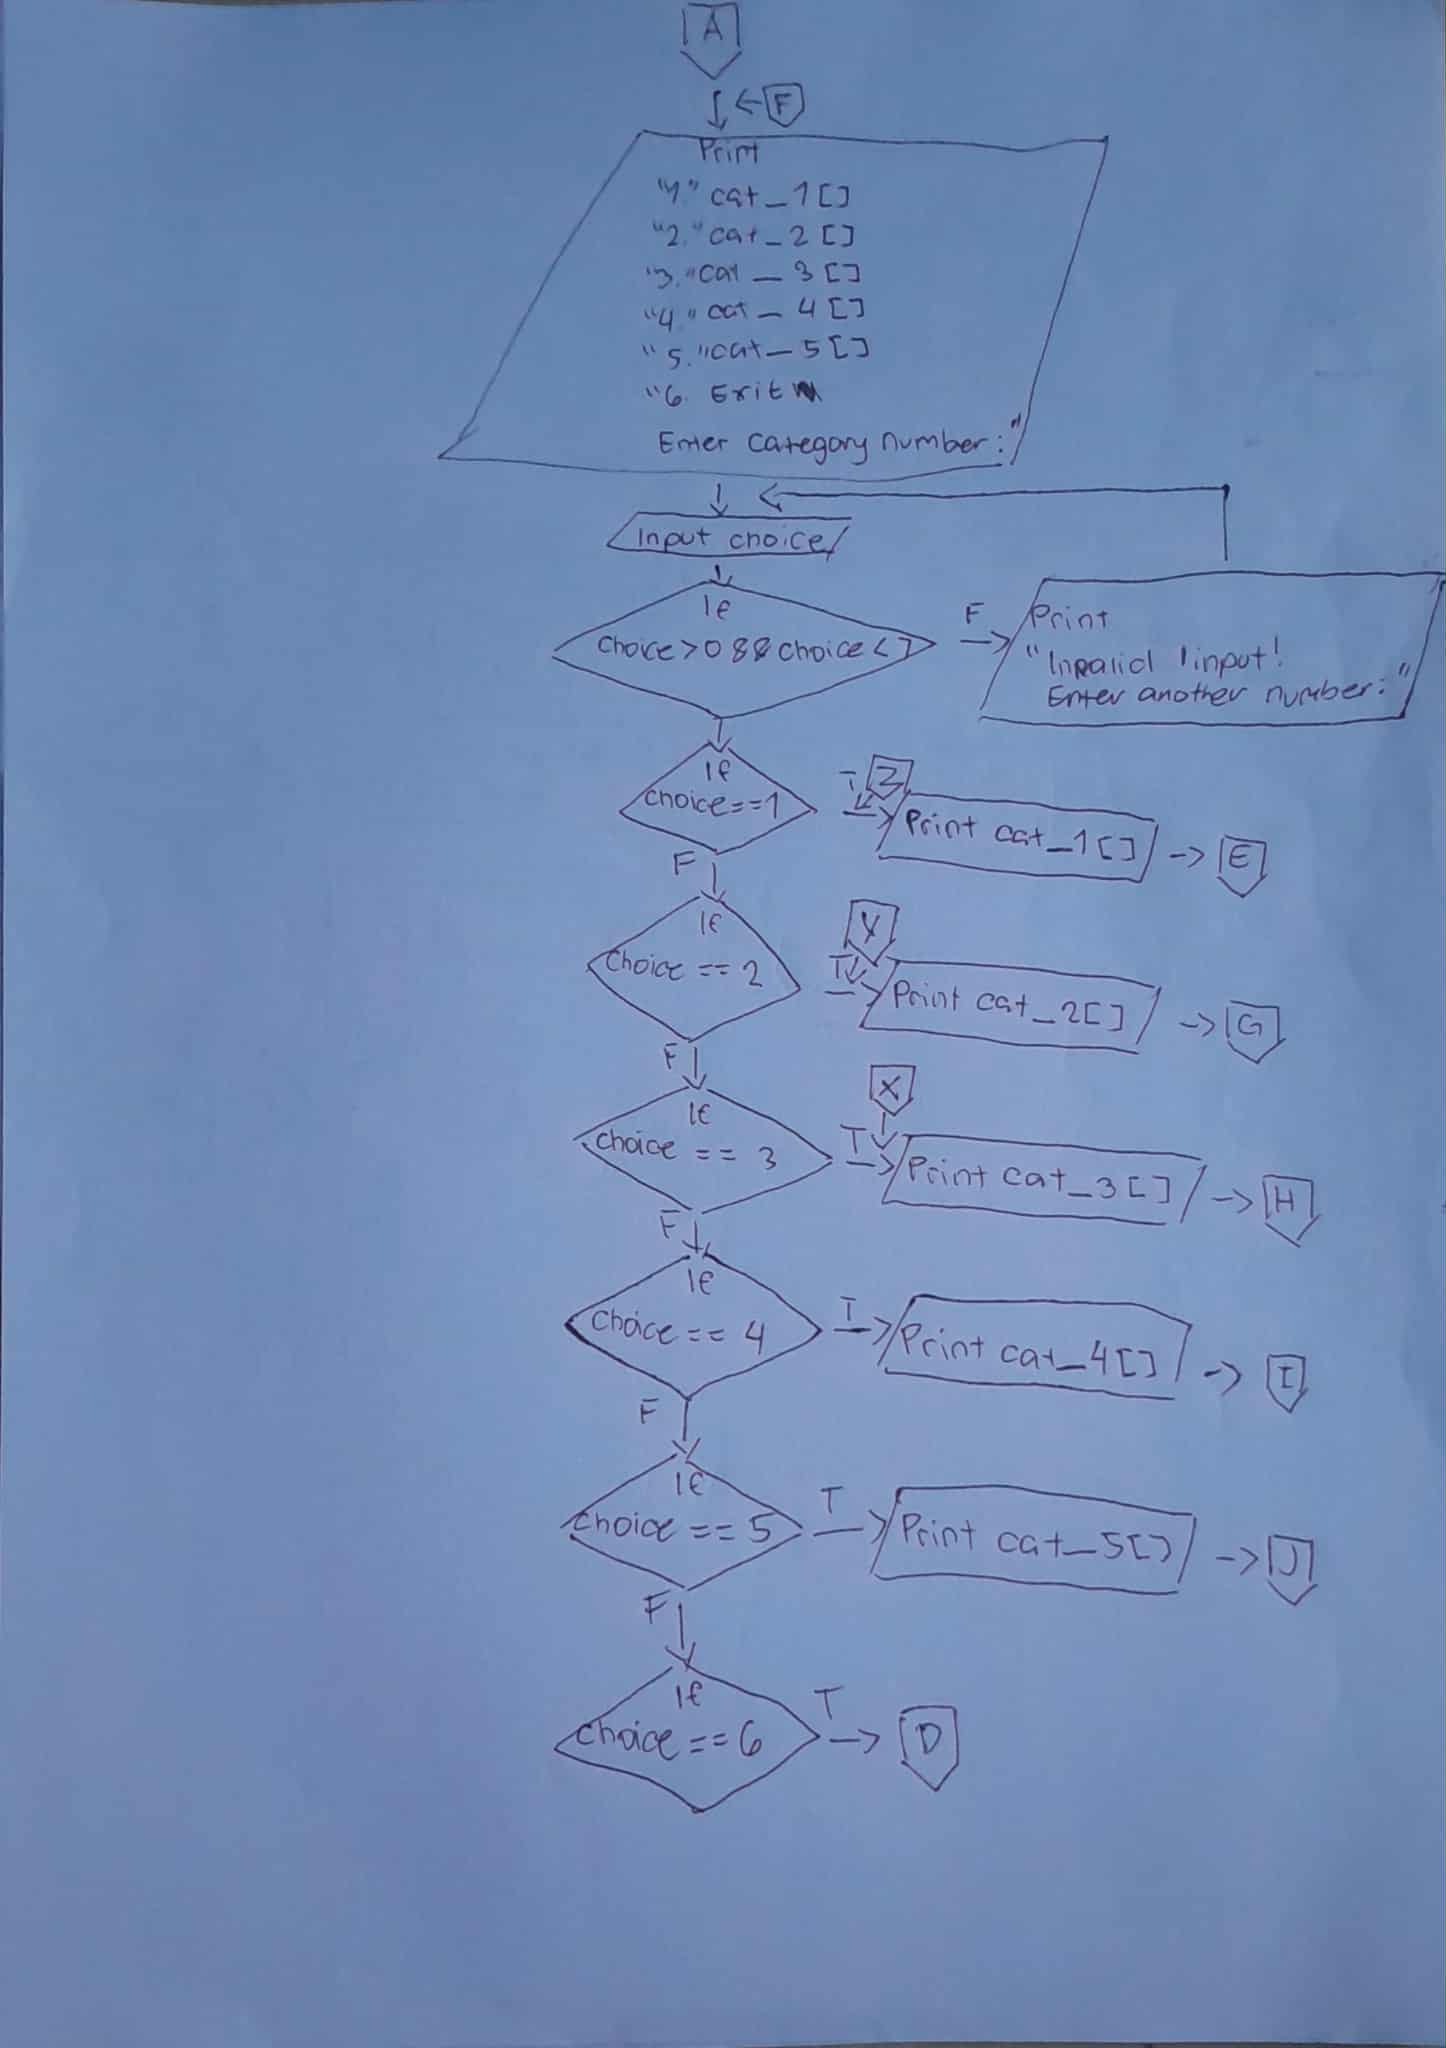 A
F
Print
"1." cat_1[]
"2." cat_2[]
"3." cat_3[]
"4." cat_4[]
"5." cat_5[]
"6. Exit
Enter category number:"
Input choice
If
choice>0 && choice<7
F
Print
"Invalid input!
Enter another number:"
If
choice==1
T
Z
Print cat_1[]
E
F
If
Choice == 2
T
Y
Print cat_2[]
G
F
If
choice == 3
T
X
Print cat_3[]
H
F
If
choice == 4
T
Print cat_4[]
I
F
If
choice == 5
T
Print cat_5[]
J
F
If
choice == 6
T
D